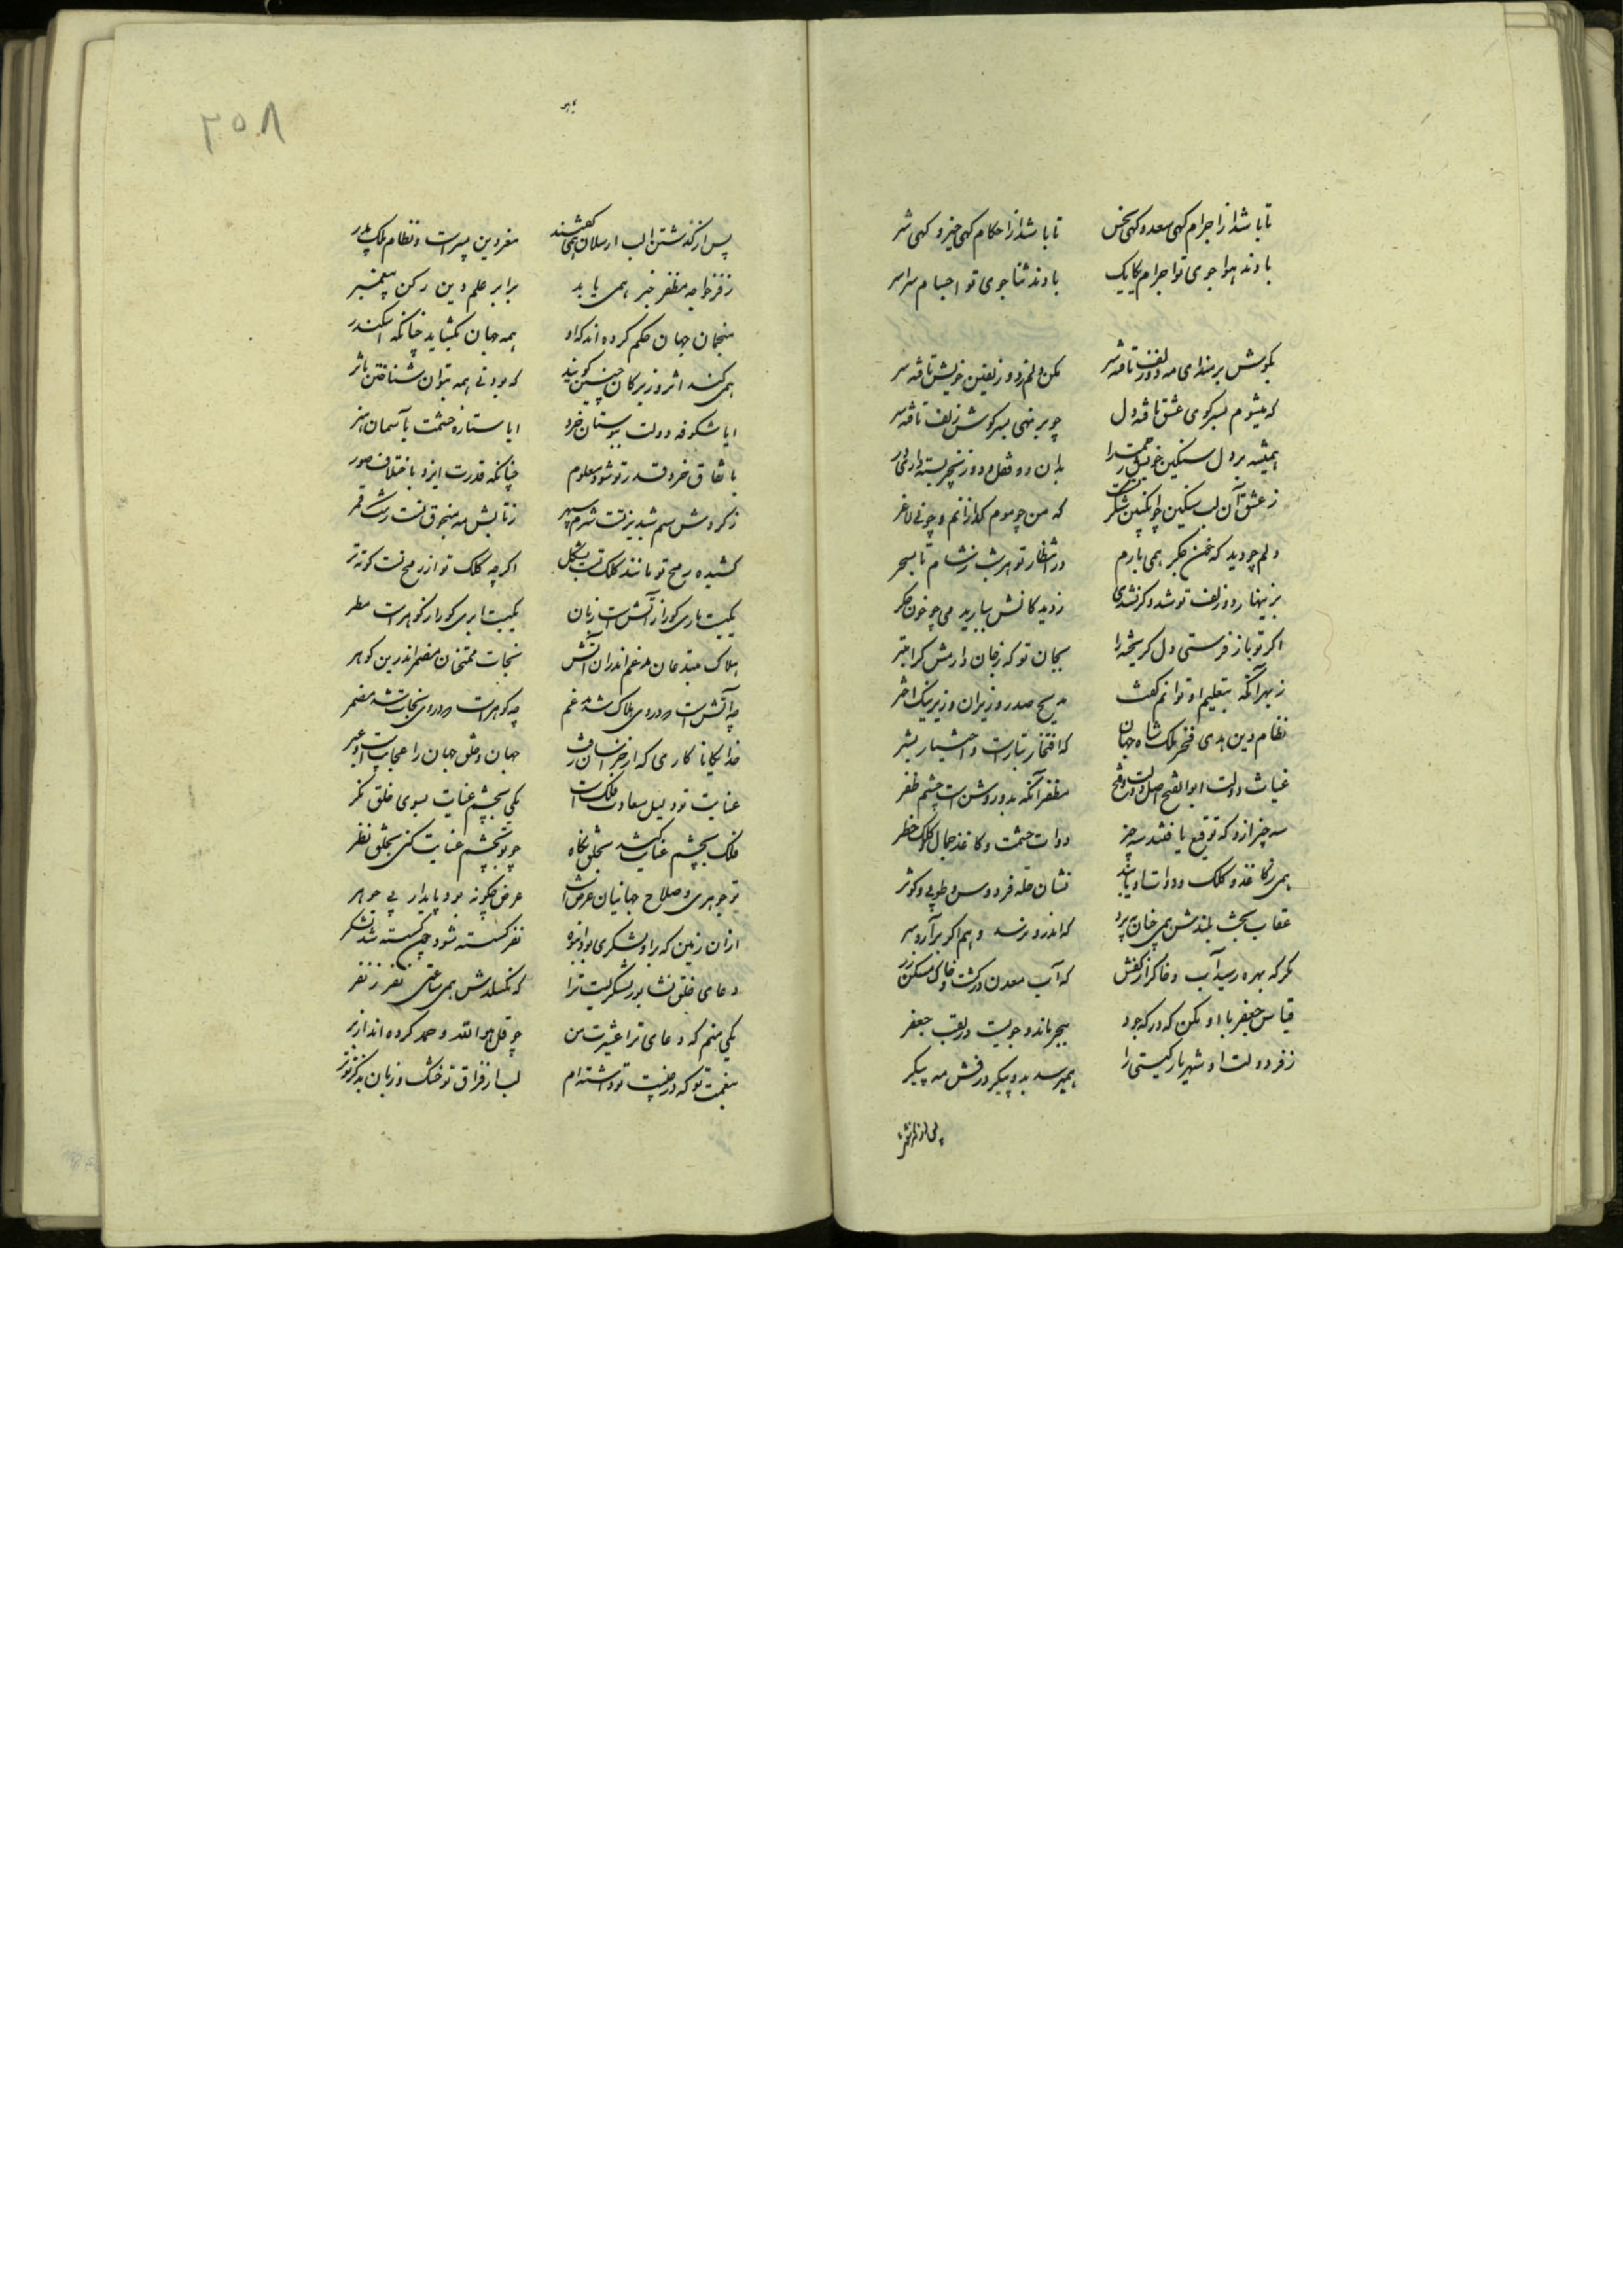 تا باشد از اجرام کهی سعد و کهی نحس تا باشد از احکام کهی خیر و کهی شر
بادند هوا جوی تو اجرام یکایک بادند ثنا جوی تو اجسام سراسر
بکوش بر منه ای مه دو زلف تافته سر مکن دلم ز دو زلفین خویش تافته سر
که میشوم بسر کوی عشق تافته دل چو بر نهی بسر کوش زلف تافته سر
همیشه بر دل سنکین خویش رحمت را بدان دو قفل و دو زنجیر بسته داری در
ز عشق آن لب سنکین چو انکبین شکرت که من چو موم کدازانم و چو نی لاغر
دلم چو دید که خون جکر همی بارم در انتظار تو هر شب ز شام تا بسحر
بزینهار دو زلف تو شد و کر نشدی ز دیدکانش ببارید می چو خون جکر
اکر تو باز فرستی دل کریخته را بجان تو که ز جان دارمش کرامی تر
ز بهر آنکه بتعلیم او توانم کفت مدیح صدر وزیران وزیر نیک اختر
نظام دین هدی فخر ملک شاه جهان که افتخار تبارست و اختیار بشر
غیاث دولت ابو الفتح اصل دولت و فتح مظفر آنکه بدو روشن است چشم ظفر
سه چیز ازو که توقیع یافتند سه چیز دوات حشمت و کاغذ جمال و کلک خطر
همی ز کاغذ و کلک و دوات او یابند نشان حله فردوس و طوبی و کوثر
عقاب بخت بلندش همی چنان پرد که اندرو نرسد وهم اکر برآرد سر
مکر که بهره رسید آب و خاک را ز کفش که آب معدن در کشت و خاک مسکن زر
قیاس جعفر با او مکن که در که جود ببحر ماند و جویست در لقب جعفر
ز فر دولت او شهریار کیتی را همیرسد بدو پیکر درفش مه پیکر
پس از کذشتن
۳۵۸
پس از کذشتن الب ارسلان همی کفتند مغر دین پسرست و نظام ملک پدر
ز فر خواجه مظفر خبر همی یابد برابر علم دین رکن پیغمبر
منجمان جهان حکم کرده اند که او همه جهان بکشاید چنانکه اسکندر
همی کنند اثر و زیرکان چنین کویند که بودنی همه بتوان شناختن باثر
ایا شکوفه دولت ببوستان خرد ایا ستاره حشمت بآسمان هنر
باتفاق خرد قدر تو شود معلوم چنانکه قدرت ایزد باختلاف صور
ز کردش سم شبدیز تست شرم سپهر ز تابش مه منجوق تست رشک قمر
کشیده رمح تو مانند کلک تست بشکل اکرچه کلک تو از رمح تست کوته تر
یکیست ماری کو را ز آتش است زبان یکیست ابری کو را ز کوهرست مطر
هلاک مبتدعان مدغم اندران آتش نجات ممتحنان مضمر اندرین کوهر
چه آتش است که در وی هلاک شد مدغم چه کوهرست که در وی نجات شد مضمر
خدایکانا کاری که از خراسان رفت جهان و خلق جهان را عجایب است و عبر
عنایت تو دلیل سعادت فلک است یکی بچشم عنایت بسوی خلق نکر
فلک بچشم عنایت کند بخلق نکاه چو تو بچشم عنایت کنی بخلق نظر
تو جوهری و صلاح جهانیان عرض است عرض چکونه بود پایدار بی جوهر
ازان زمین که برو لشکری بود انبوه نفر کسسته شود چون کسسته شد لشکر
دعای خلق نشابور لشکریست ترا که نکسلدش همی ساعتی نفر ز نفر
یکی منم که دعای ترا عشیرت من چو قل هو الله و حمد کرده اند از بر
بنعمت تو که در غیبت تو داشته ام لب از فراق تو خشک و زبان بذکر تو تر